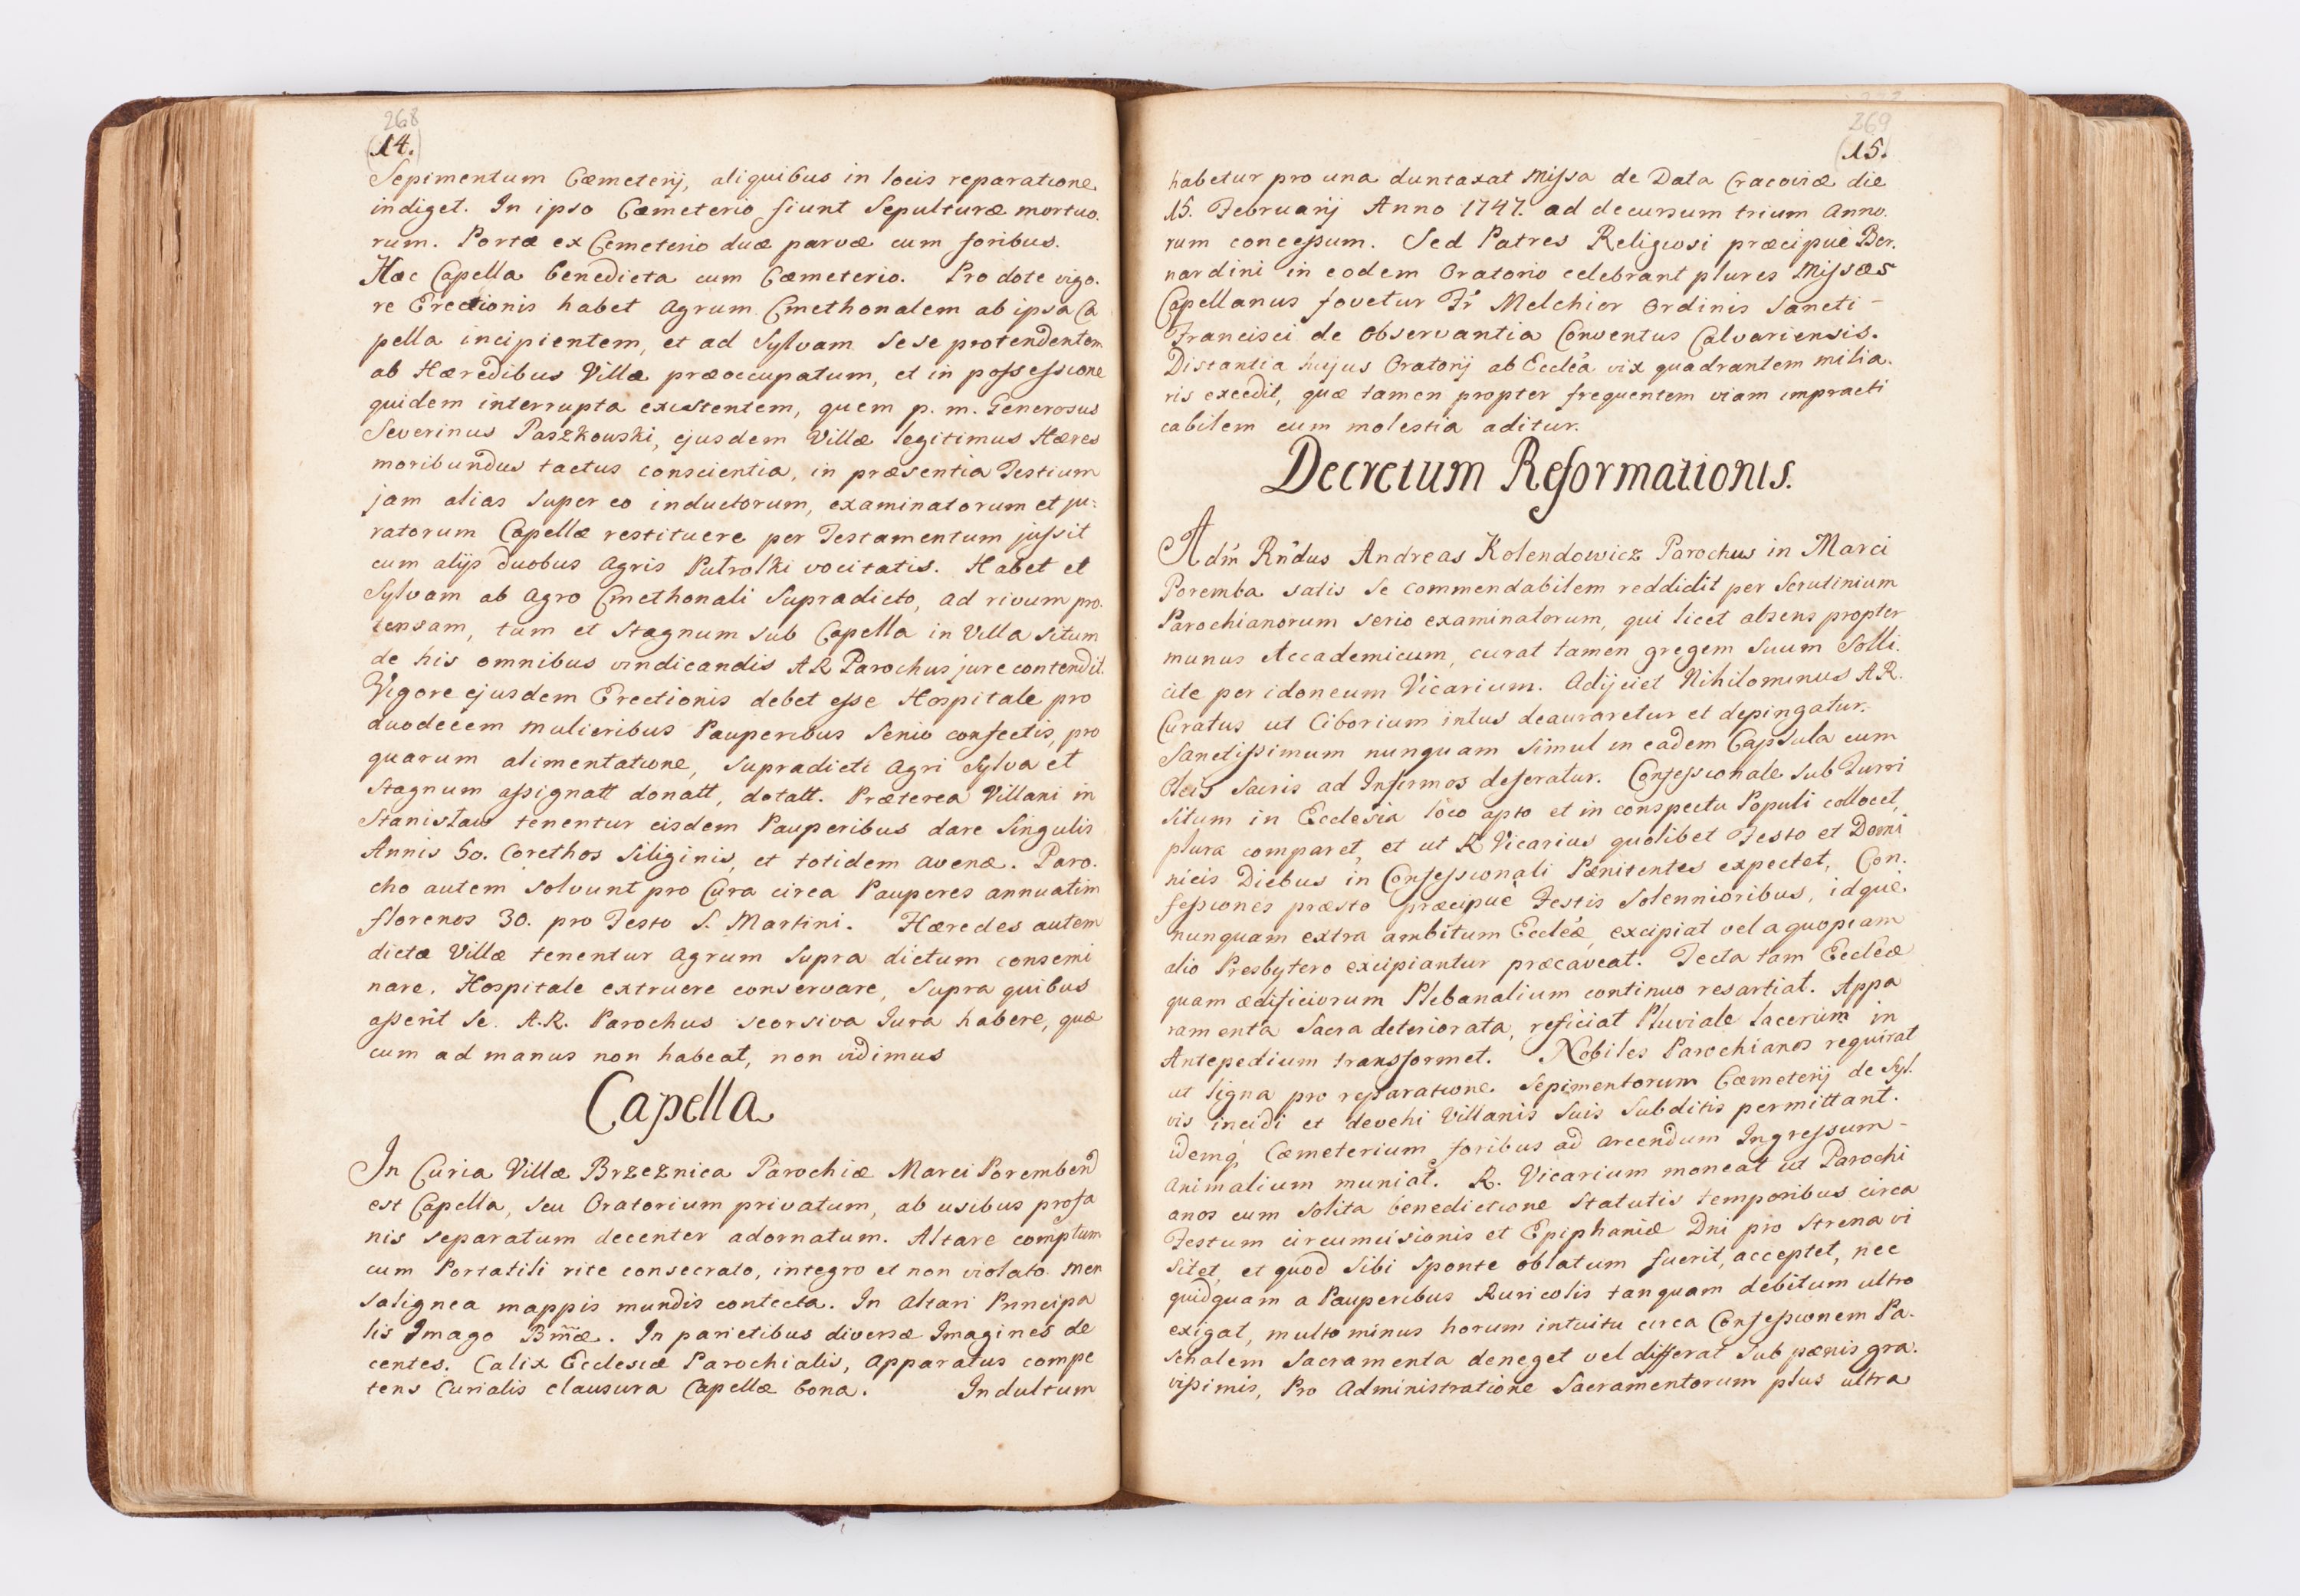 268
(14.)
Sepimentum Cæmeterij, aliquibus in locis reparatione
indiget. In ipso Cæmeterio fiunt Sepulturæ mortuo.
rum. Portæ ex Cemeterio duæ parvæ cum foribus.
Hæc Capella benedicta cum Cæmeterio. Pro dote vigo.
re Erectionis habet Agrum Cmethonalem ab ipsa Ca
pella incipientem, et ad Sylvam Sese protendentem
ab Hæredibus Villæ præoccupatum, et in possessione
quidem interrupta existentem, quem p. m. Generosus
Severinus Paszkowski, ejusdem Villæ legitimus Hæres
moribundus tactus conscientia, in præsentia Testium
jam alias Super eo inductorum, examinatorum et ju:
ratorum Capellæ restituere per Testamentum jussit
cum alijs duobus Agris Putrolki vocitatis. Habet et
Sylvam ab Agro Cmethonali Supradicto, ad rivum pro.
tensam, tum et Stagnum sub Capella in Villa Situm
de his omnibus vindicandis AR Parochus jure contendit.
Vigore ejusdem Erectionis debet esse Hospitale pro
duodecem mulieribus Pauperibus Senio confectis, pro
quarum alimentatione, Supradicti Agri Sylva et
Stagnum assignatt donatt, dotatt. Præterea Villani in
Stanisław tenentur eisdem Pauperibus dare Singulis
Annis 50. Corethos Siliginis, et totidem avenæ. Paro.
cho autem solvunt pro Cura circa Pauperes annuatim
florenos 30. pro Festo S. Martini. Hæredes autem
dictæ Villæ tenentur Agrum Supra dictum consemi
nare. Hospitale extruere conservare, Supra quibus
asserit Se A.R. Parochus seorsiva Jura habere, quæ
cum ad manus non habeat, non vidimus
Capella
In Curia Villæ Brzeznica Parochiæ Marci Porembend
est Capella, Seu Oratorium privatum, ab usibus profa
nis separatum decenter adornatum. Altare comptum
cum Portatili rite consecrato, integro et non violato Men
salignea mappis mundis contecta. In Altari Principa
lis Imago Bmæ. In parietibus diversæ Imagines de
centes. Calix Ecclesiæ Parochialis, Apparatus compe
tens Curialis clausura Capellæ bona. Indultum
269
(15.)
habetur pro una duntaxat Missa de Data Cracoviæ die
15. Februarij Anno 1747. ad decursum trium Anno.
rum concessum. Sed Patres Religiosi præcipuè Ber.
nardini in eodem Oratorio celebrant plures Missas
Capellanus fovetur Fr Melchior Ordinis Sancti –
Francisci de Observantia Conventus Calvariensis.
Distantia hujus Oratorij ab Eccléa vix quadrantem milia.
ris excedit, quæ tamen propter frequentem viam impracti
cabilem cum molestia aditur.
Decretum Reformationis.
Adm Rndus Andreas Kolendowicz Parochus in Marci
Poremba satis Se commendabilem reddidit per Scrutinium
Parochianorum serio examinatorum, qui licet absens propter
munus Accademicum, curat tamen gregem Suum Solli.
cite per idoneum Vicarium. Adijciet Nihilominus AR.
Curatus ut Ciborium intus deauraretur et depingatur.
Sanctissimum nunquam Simul in eadem Capsula cum
Oleis Sacris ad Infirmos deferatur. Confessionale Sub Turri
Situm in Ecclesia loco apto et in conspectu Populi collocet,
plura comparet, et ut R Vicarius quolibet Festo et Domi
nicis Diebus in Confessionali Pœnitentes expectet, Con.
fessiones præsto præcipuè Festis Solennioribus, idquè
nunquam extra ambitum Eccléæ, excipiat vel a quopiam
alio Presbytero excipiantur præcaveat. Tecta tam Eccléæ
quam ædificiorum Plebanalium continuo resartiat. Appa
ramenta Sacra deteriorata, reficiat Pluviale lacerum in
Antepedium transformet. Nobiles Parochianos requirat
ut ligna pro reparatione Sepimentorum Cæmeterij de Syl.
vis incidi et devehi Villanis Suis Subditis permittant.
idemq Cæmeterium foribus ad arcendum Ingressum –
Animalium muniat. R. Vicarium moneat ut Parochi
anos cum Solita benedictione Statutis temporibus circa
Festum circumcisionis et Epiphaniæ Dni pro Strena vi
sitet, et quod Sibi Sponte oblatum fuerit, acceptet, nec
quidquam a Pauperibus Ruricolis tanquam debitum ultro
exigat, multo minus horum intuitu circa Confessionem Pa.
schalem Sacramenta deneget vel differat Sub pœnis gra.
vissimis, Pro Administratione Sacramentorum plus ultra